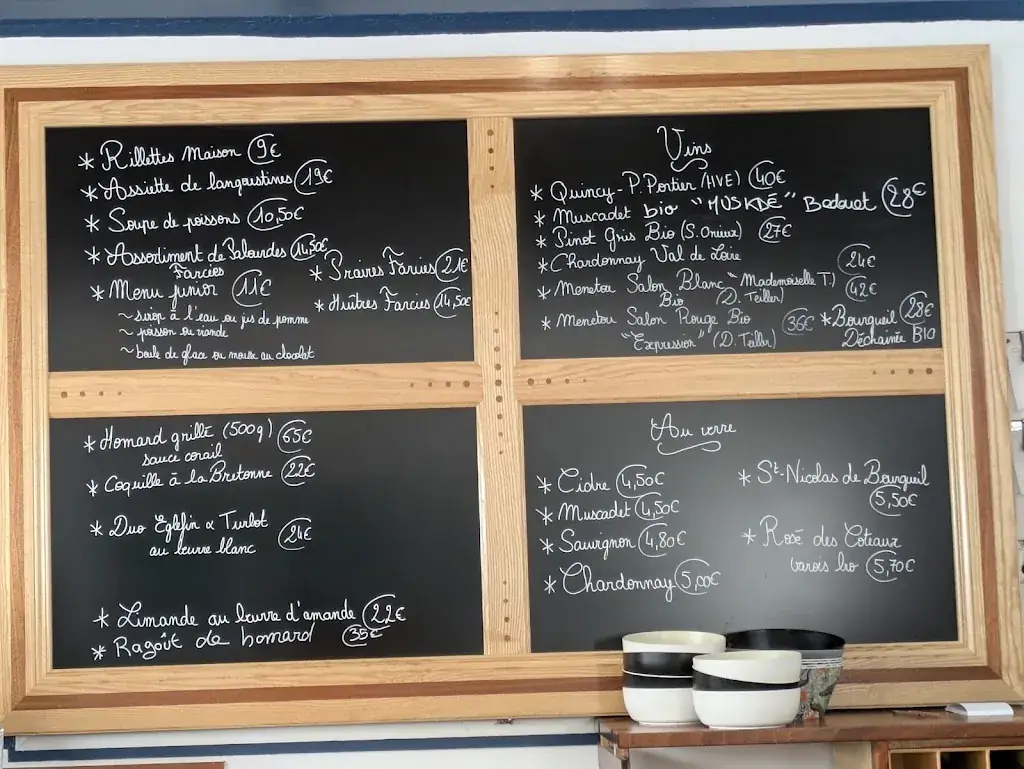 * Rillettes Maison 9€
* Assiette de langoustines 19€
* Soupe de poissons 10,50€
* Assortiment de Palourdes 14,50€
Farcies
* Praires Farcies 21€
* Menu junior 11€
* Huîtres Farcies 14,50€
~ sirop à l'eau ou jus de pomme
~ poisson ou viande
~ boule de glace ou mousse au chocolat
Vins
* Quincy - P. Portier (HVE) 40€
* Muscadet bio "MUSKDÉ" Bedouet 28€
* Pinot Gris Bio (S. Orieux) 27€
* Chardonnay Val de Loire 24€
* Menetou Salon Blanc "Mademoiselle T.) 42€
Bio (D. Teiller)
* Menetou Salon Rouge Bio 36€
"Expression" (D. Teiller)
* Bourgueil 28€
Déchainée BIO
* Homard grillé (500g) 65€
sauce corail
* Coquille à la Bretonne 22€
* Duo Eglefin & Turbot 24€
au beurre blanc
* Limande au beurre d'amande 22€
* Ragoût de homard 35€
Au verre
* Cidre 4,50€
* Muscadet 4,50€
* Sauvignon 4,80€
* Chardonnay 5,00€
* St-Nicolas de Bourgueil
5,50€
* Rosé des Coteaux
varois bio 5,70€